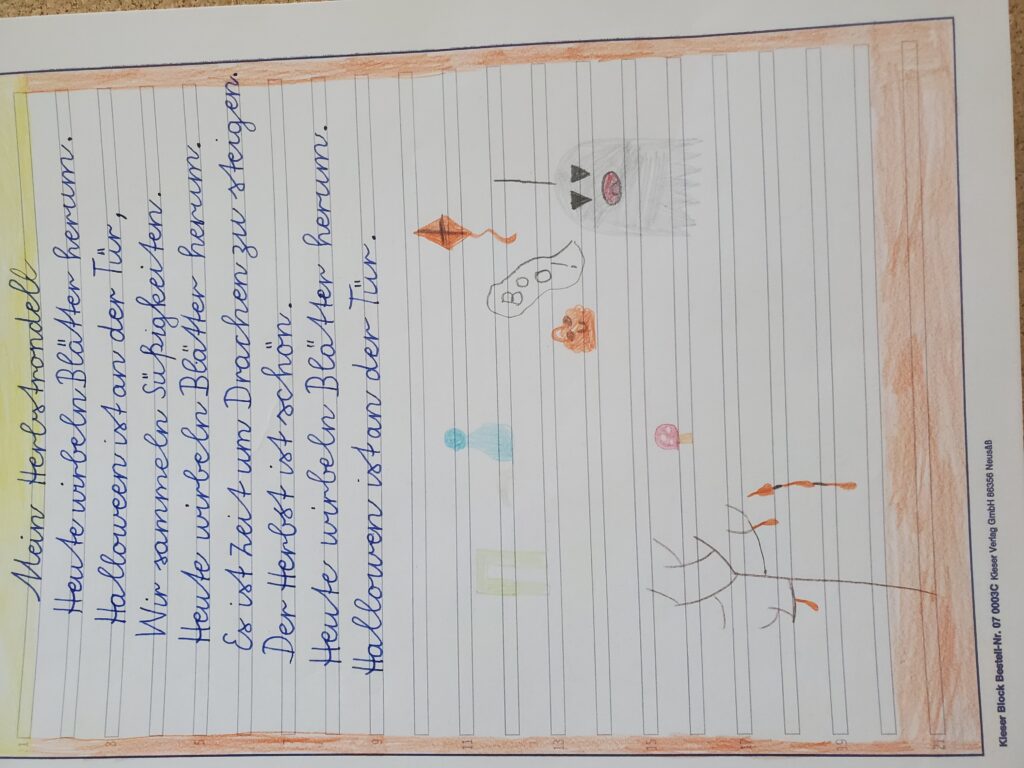 Mein Herbstrondell
Heute wirbeln Blätter herum.
Halloween ist an der Tür,
Wir sammeln Süßigkeiten.
Heute wirbeln Blätter herum.
Es ist Zeit um Drachen zu steigen.
Der Herbst ist schön.
Heute wirbeln Blätter herum.
Hallowen ist an der Tür.
BOO!
1
3
5
7
9
11
13
15
17
19
21
Kieser Block Bestell-Nr. 07 0003C Kieser Verlag GmbH 86356 Neusäß